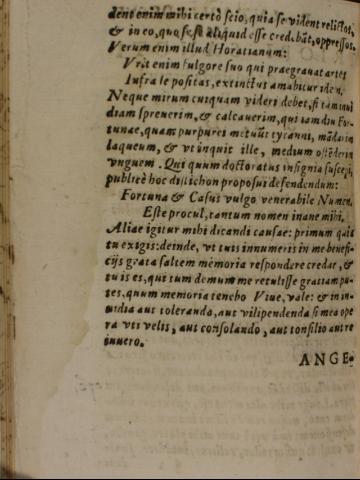 dent enim mihi certò scio, quia se vident relictos,
& in eo, quo se se aliquid esse credebāt, oppressos.
Verum enim illud Horatianum:
Vrit enim fulgore suo qui praegrauat artes
Infra se positas, extinctus amabitur idem.
Neque mirum cuiquam videri debet, si tam inui
diam spreuerim, & calcauerim, qui iamdiu For-
tunae, quam purpurei metuūt tyranni, mādarim
laqueum, & vt inquit ille, medium ostēderim
vnguem. Qui quum doctoratus insignia suscepi,
publicè hoc distichon proposui defendendum:
Fortuna & Casus vulgo venerabile Numen,
Este procul, tantum nomen inane mihi.
Aliae igitur mihi dicandi causae: primum quia
tu exigis: deinde, vt tuis innumeris in me benefi-
cijs grata saltem memoria respondere credar, &
tu is es, qui tum demum me retulisse gratiam pu-
tes, quum memoria teneho Viue, vale: & in in-
uidia aut toleranda, aut vilipendenda si mea ope
ra vti velis, aut consolando, aut consilio aut re
iuuero.
ANGE-